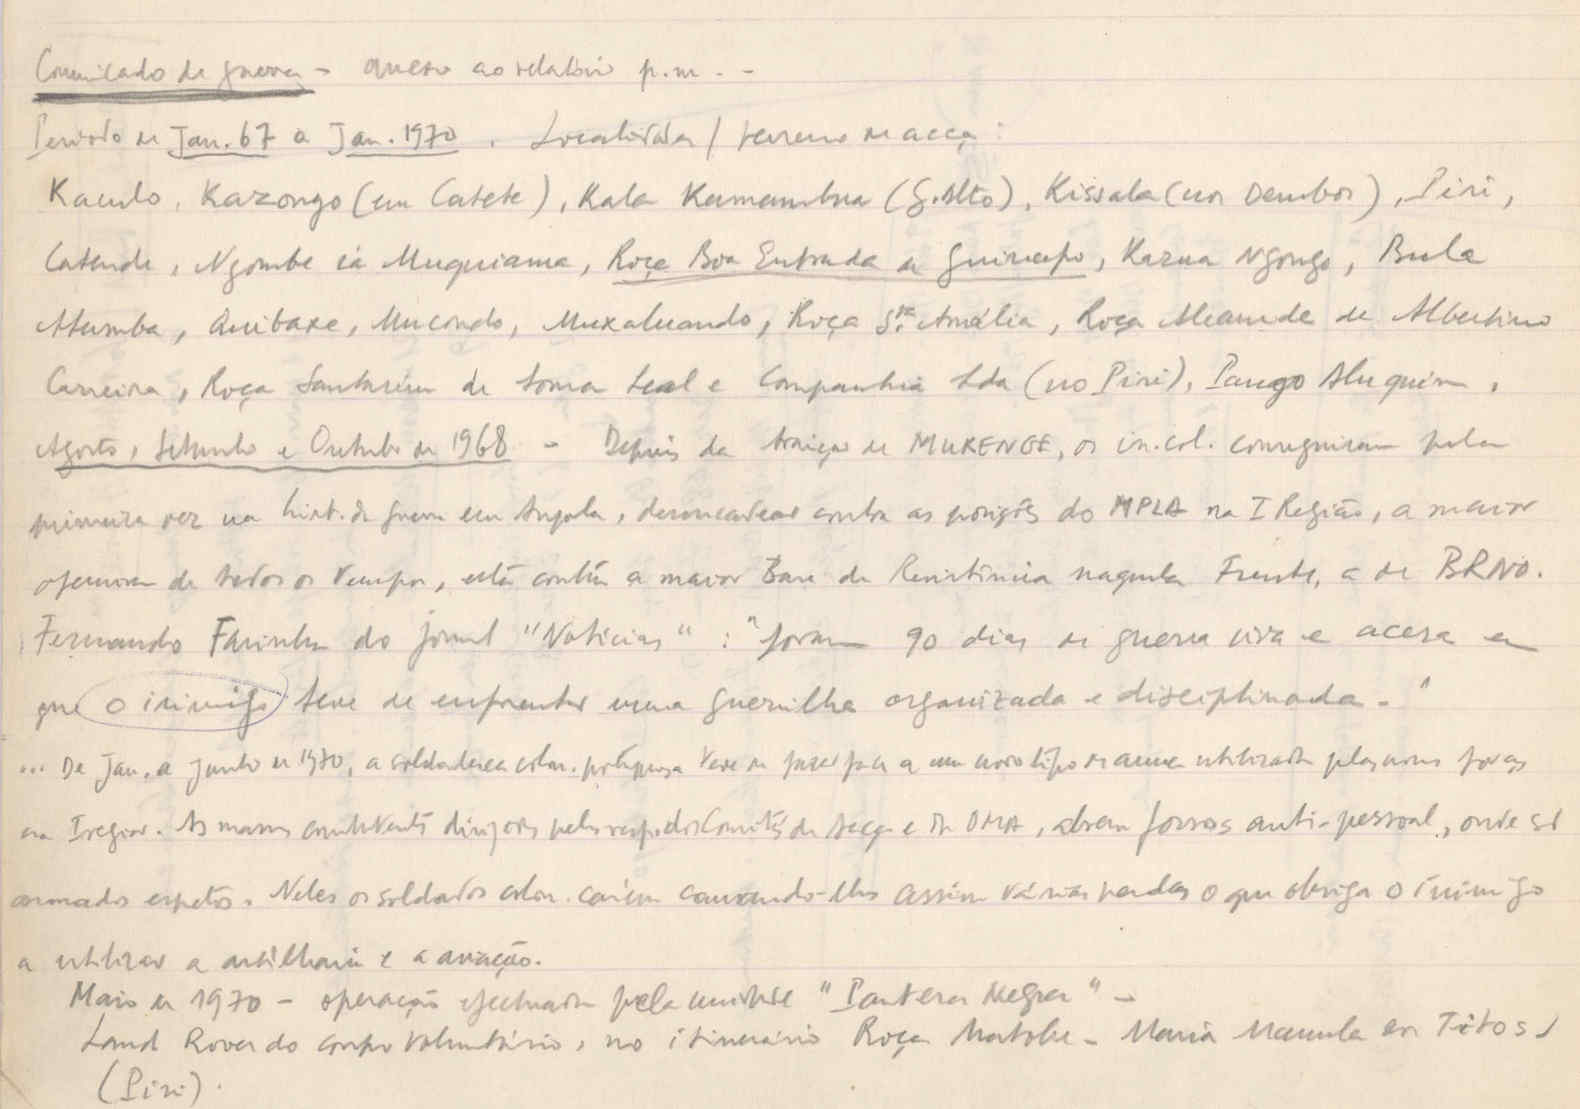 Comunicado de guerra - anexo ao relatório p.m. -
Periodo de Jan. 67 a Jan. 1970. Localidades / terreno de acção:
Kaculo, Kazongo (em Catete), Kala Kamambua (G. Alto), Kissala (nos Dembos), Piri,
Catende, Ngombe ia Muquiama, Roça Boa Entrada de, Kazua Ngongo, Bula
Atumba, Quibaxe, Mucondo, Muxaluando, Roça Sta. Amélia, Roça de Albertino
Carreira, Roça Santarém de Soma Leal e Companhia Lda (no Piri), Pango Aluquem.
Agosto, Setembro e Outubro de 1968 - Depois da traição de MUKENGE, os in. col. conseguiram pela
primeira vez na hist. da guerra em Angola, desencadear contra as posições do MPLA na I Região, a maior
ofensiva de todos os tempos, esta contra a maior Base de Resistência naquela Frente, a de BRNO.
Fernando Farinha do jornal "Noticias" : "foram 90 dias de guerra viva e acesa em
que o inimigo teve de enfrentar uma guerrilha organizada e disciplinada."
... De Jan. a Junho de 1970, a soldadesca colon. portuguesa teve de fazer face a um novo tipo de arma utilizada pelas nossas forças
na I região. As massas combatentes dirigidas pelos resp. dos Comités de Acção e da OMA, abrem fossos anti-pessoal, onde são
armados espetos. Neles os soldados colon. caiem causando-lhes assim várias perdas o que obriga o inimigo
a utilizar a artilharia e a aviação.
Maio de 1970 - operação efectuada pela unidade "Pantera Negra" -
Land Rover do corpo voluntário, no itinerário Roça - Maria Manuela
(Piri).